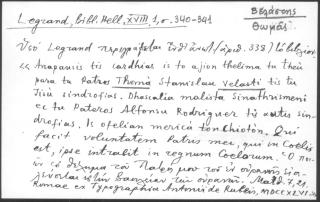 Legrand, Bibl. Hell., XVIII, 1, σ. 340-341
Βελάστης
Θωμᾶς
Ὑπὸ Legrand περιγράφεται (ἀριθ. 338) τὸ βιβλίον
ec Anapausis tis cardhias is to ajion thelima tu theu
para tu Patros Thomà Stanislau Velasti tis tu
Jisù sindrofias. Dhascalia malista Sinathrismeni
ec tu Pateros Alfonsu Rodriguez tis aftis sin-
drofias. Is ofelian merica tonchioton. Qui
facit voluntatem Patris mei, qui in Coelis
est, ipse intrabit in regnum Coelorum. Ὁ ποι-
ῶν τὸ θέλημα τοῦ Πατρός μου τοῦ ἐν οὐρανοῖς εἰσε-
λεύσεται εἰς τὴν βασιλείαν τῶν οὐρανῶν. Matth. 7, 21.
Romae ex Typographia Antonii de Rubeis, MDCCXLVI